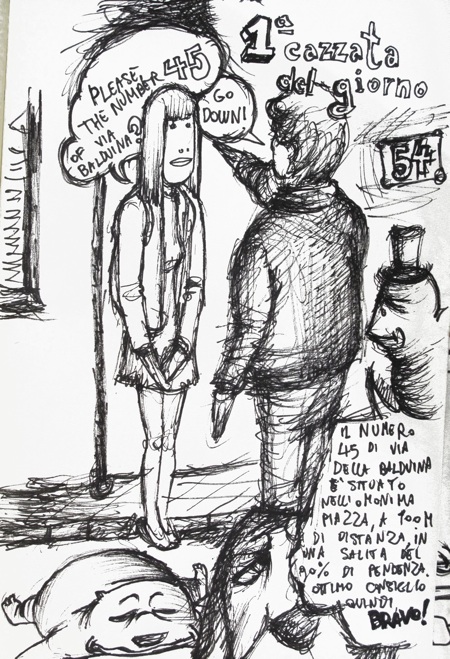 1ª cazzata
del giorno
PLEASE
THE NUMBER 45
OF VIA
BALDUINA?
GO
DOWN!
54
IL NUMERO
45 DI VIA
DELLA BALDUINA
E' SITUATO
NELL'OMONIMA
PIAZZA, A 100M
DI DISTANZA, IN
UNA SALITA DEL
90% DI PENDENZA.
OTTIMO CONSIGLIO
QUINDI
BRAVO!